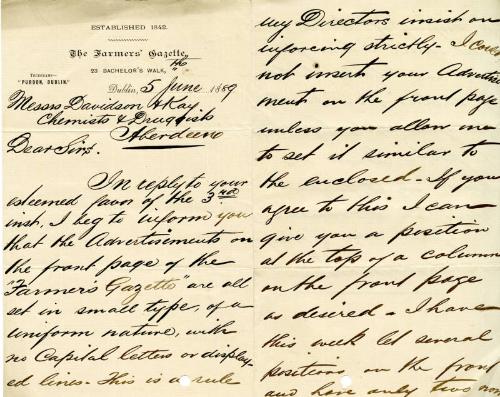 ESTABLISHED 1842.
The Farmers' Gazette,
23 BACHELOR'S WALK,
TELEGRAMS—
"PURDON, DUBLIN."
Dublin, 5 June 1889
Messrs Davidson & Kay
Chemists & Druggists
Aberdeen
Dear Sirs.
In reply to your
esteemed favor of the 3rd
inst, I beg to inform you
that the Advertisements on
the front page of the
"Farmer's Gazette" are all
set in small type, of a
uniform nature, with
no Capital letters or display-
ed lines - This is a rule
my Directors insist on
inforcing strictly - I could
not insert your Advertise
ment on the front page
unless you allow me
to set it similar to
the enclosed - If you
agree to this I can
give you a position
at the top of a column
on the front page
as desired - I have
this week let several
positions on the front
and have only two now